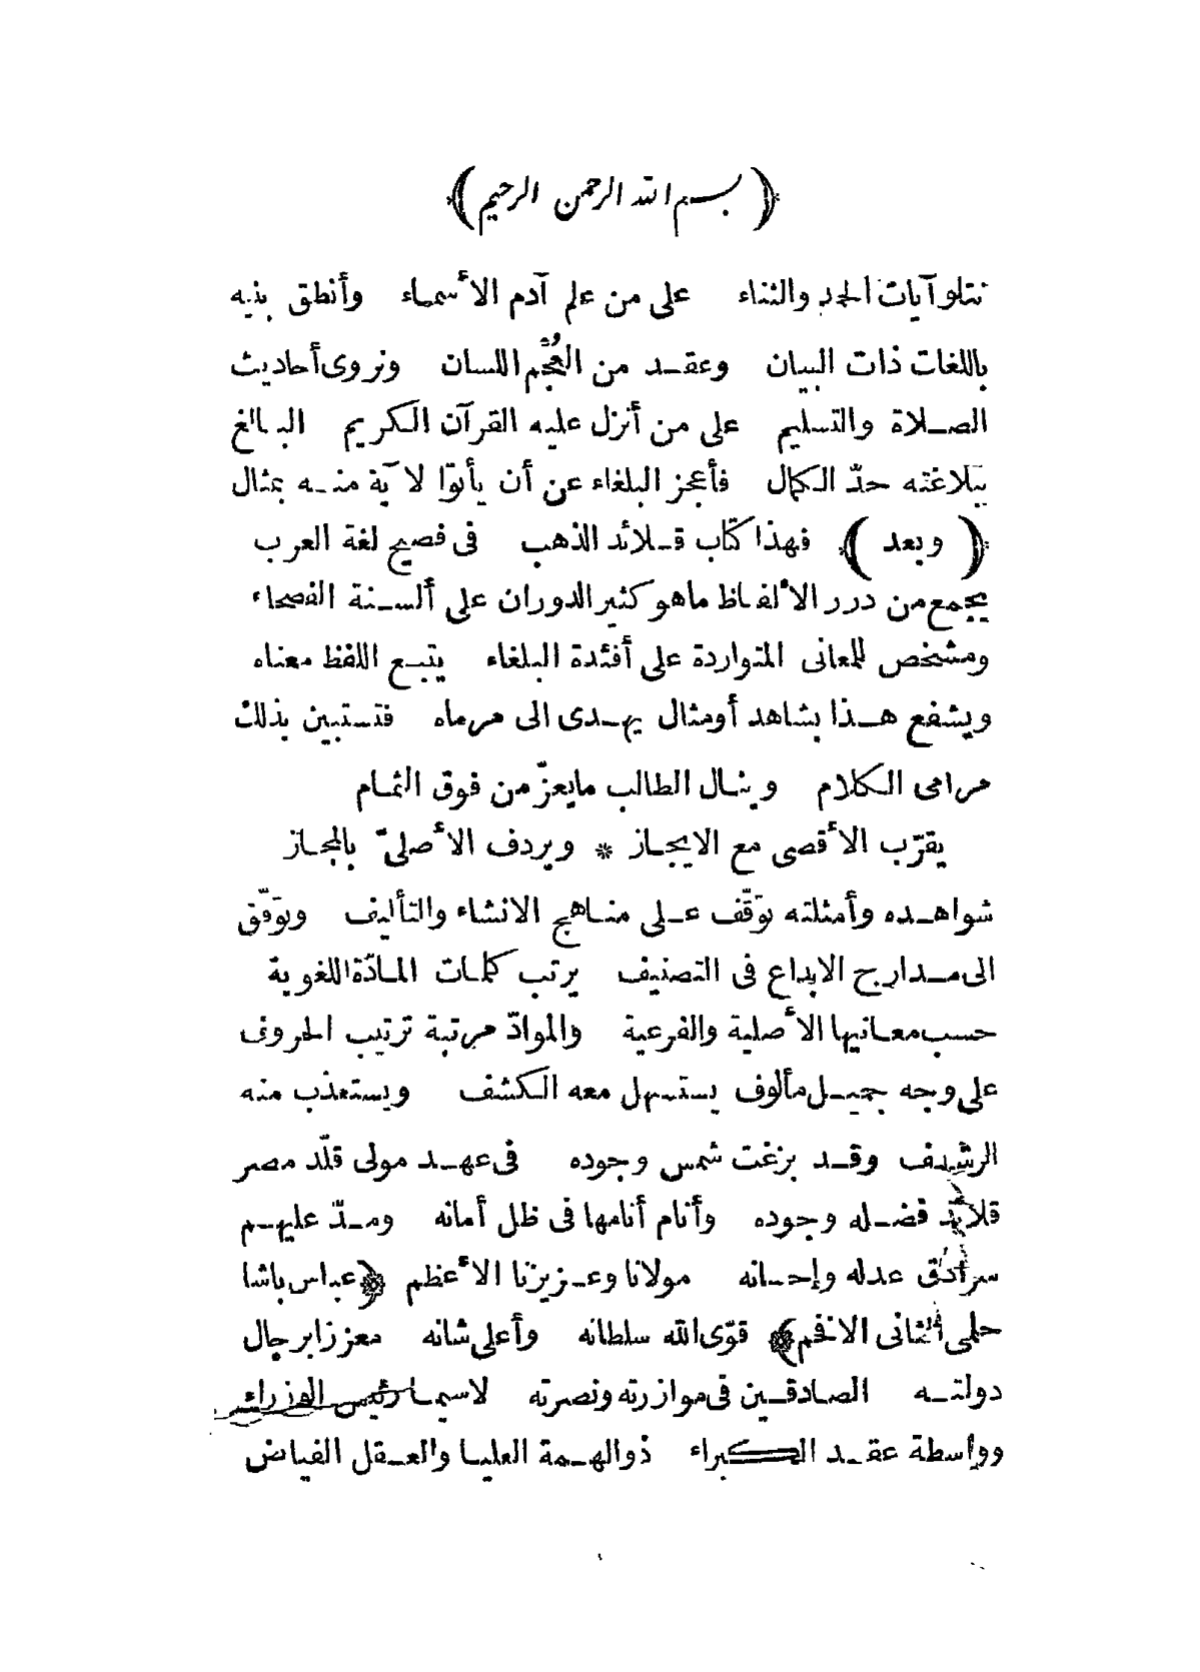 ﴿ بسم الله الرحمن الرحيم ﴾
نتلو آيات الحمد والثناء على من علم آدم الأسماء وأنطق بنيه
باللغات ذات البيان وعقد من العُجْم اللسان ونروى أحاديث
الصلاة والتسليم على من أنزل عليه القرآن الكريم البالغ
ببلاغته حدّ الكمال فأعجز البلغاء عن أن يأتوا لآية منه بمثال
﴿ وبعد ﴾ فهذا كتاب قلائد الذهب فى فصيح لغة العرب
يجمع من درر الألفاظ ماهو كثير الدوران على ألسنة الفصحاء
ومشخص للمعانى المتواردة على أفئدة البلغاء يتبع اللفظ معناه
ويشفع هذا بشاهد أومثال يهدى الى مرماه فتستبين بذلك
مرامى الكلام وينال الطالب مايعزّ من فوق الثمام
يقرّب الأقصى مع الايجاز * ويردف الأصلىّ بالمجاز
شواهده وأمثلته توَقّف على مناهج الانشاء والتأليف وتوَفّق
الى مدارج الابداع فى التصنيف يرتب كلمات المادّة اللغوية
حسب معانيها الأصلية والفرعية والموادّ مرتبة ترتيب الحروف
على وجه جميل مألوف يستسهل معه الكشف ويستعذب منه
الرشف وقد بزغت شمس وجوده فى عهد مولى قلّد مصر
قلائد فضله وجوده وأنام أنامها فى ظل أمانه ومدّ عليهم
سرادق عدله وإحسانه مولانا وعزيزنا الأعظم ﴿عباس باشا
حلمى الثانى الافخم﴾ قوّى الله سلطانه وأعلى شانه معززا برجال
دولته الصادقين فى موازرته ونصرته لاسيما رئيس الوزراء
وواسطة عقد الكبراء ذوالهمة العليا والعقل الفياض